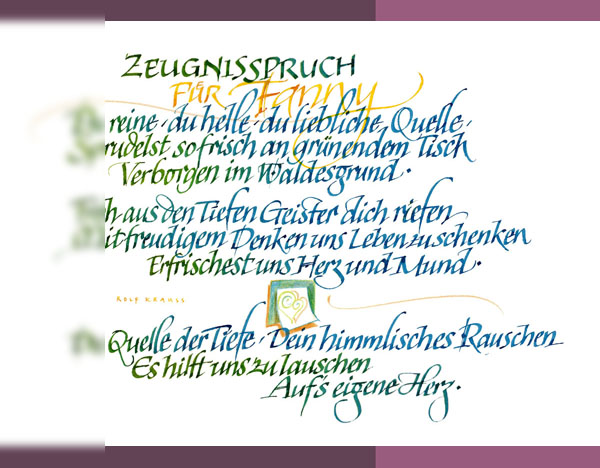 ZEUGNISSPRUCH
FÜR Fanny
reine, du helle, du liebliche Quelle,
rudelst so frisch an grünendem Tisch
Verborgen im Waldesgrund.
h aus den Tiefen Geister dich riefen
it freudigem Denken uns Leben zu schenken
Erfrischest uns Herz und Mund.
ROLF KRAUSS
Quelle der Tiefe, Dein himmlisches Rauschen
Es hilft uns zu lauschen
Auf's eigene Herz.